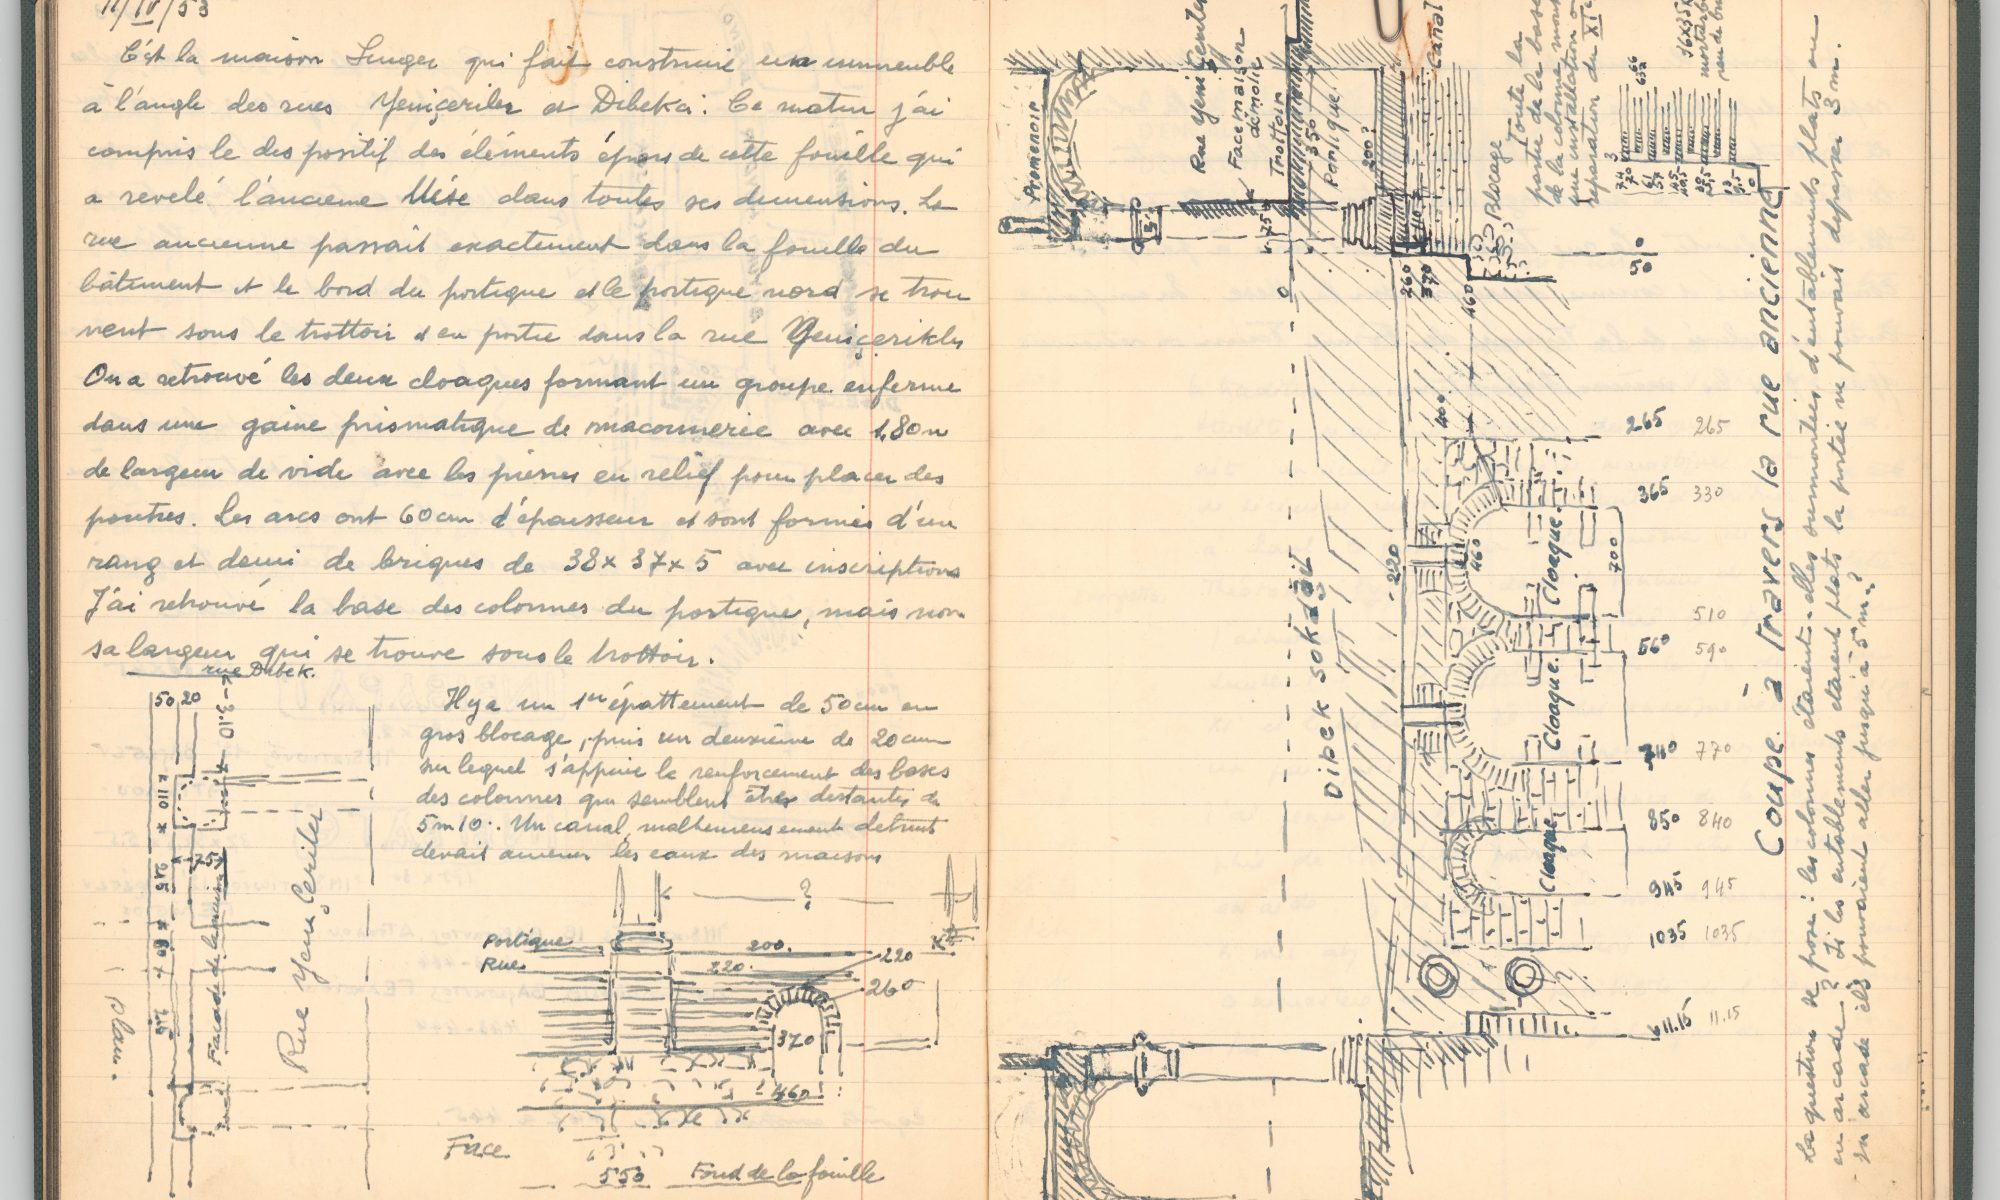 11/IV/53
C'est la maison Singer qui fait construire un immeuble
à l'angle des rues Yeniçeriler et Dibekci. Ce matin j'ai
compris le dispositif des éléments épars de cette fouille qui
a revelé l'ancienne Mése dans toutes ses dimensions. La
rue ancienne passait exactement dans la fouille du
bâtiment et le bord du portique et le portique nord se trou
vent sous le trottoir et en partie dans la rue Yeniçeriler
On a retrouvé les deux cloaques formant un groupe enfermé
dans une gaine prismatique de maconnerie avec 1,80 m
de largeur de vide avec les pierres en relief pour placer des
poutres. Les arcs ont 60cm d'épaisseur et sont formés d'un
rang et demi de briques de 38x37x5 avec inscriptions
J'ai retrouvé la base des colonnes du portique, mais non
sa largeur qui se trouve sous le trottoir.
rue Dibek.
Il y a un 1er épattement de 50cm en
gros blocage, puis un deuxième de 20cm
sur lequel s'appuie le renforcement des bases
des colonnes qui semblent être distantes de
5m10. Un canal, malheureusement detruit
devait amener les eaux des maisons
50 20
3.10
110
75
245
60
Façade de l'ancienne
Rue Yeniçeriler
Plan.
?
Portique
Rue
200.
220.
220
260
370
460
Face
550 Fond de la fouille
Promenoir
Rue Yeniçeriler
Face maison
démolie
Trottoir
350
Portique.
200?
Canal
Blocage
Toute la
partie de la base
de la colonne
une installation ou
reparation du XIe
75
0
260
370
460
50
0
Dibek sokağı
220
400
460
Cloaque.
Cloaque.
Cloaque
700
265 265
365 330
510
560 590
740 770
850 840
945 945
1035 1035
?
11.15 11.15
Coupe à travers la rue ancienne
La question se pose: les colonnes étaient-elles surmontées d'entablements plats ou
en arcade? Si les entablements étaient plats la portée ne pouvait depasser 3 m.
en arcade ils pouvaient aller jusqu'à 5 m?